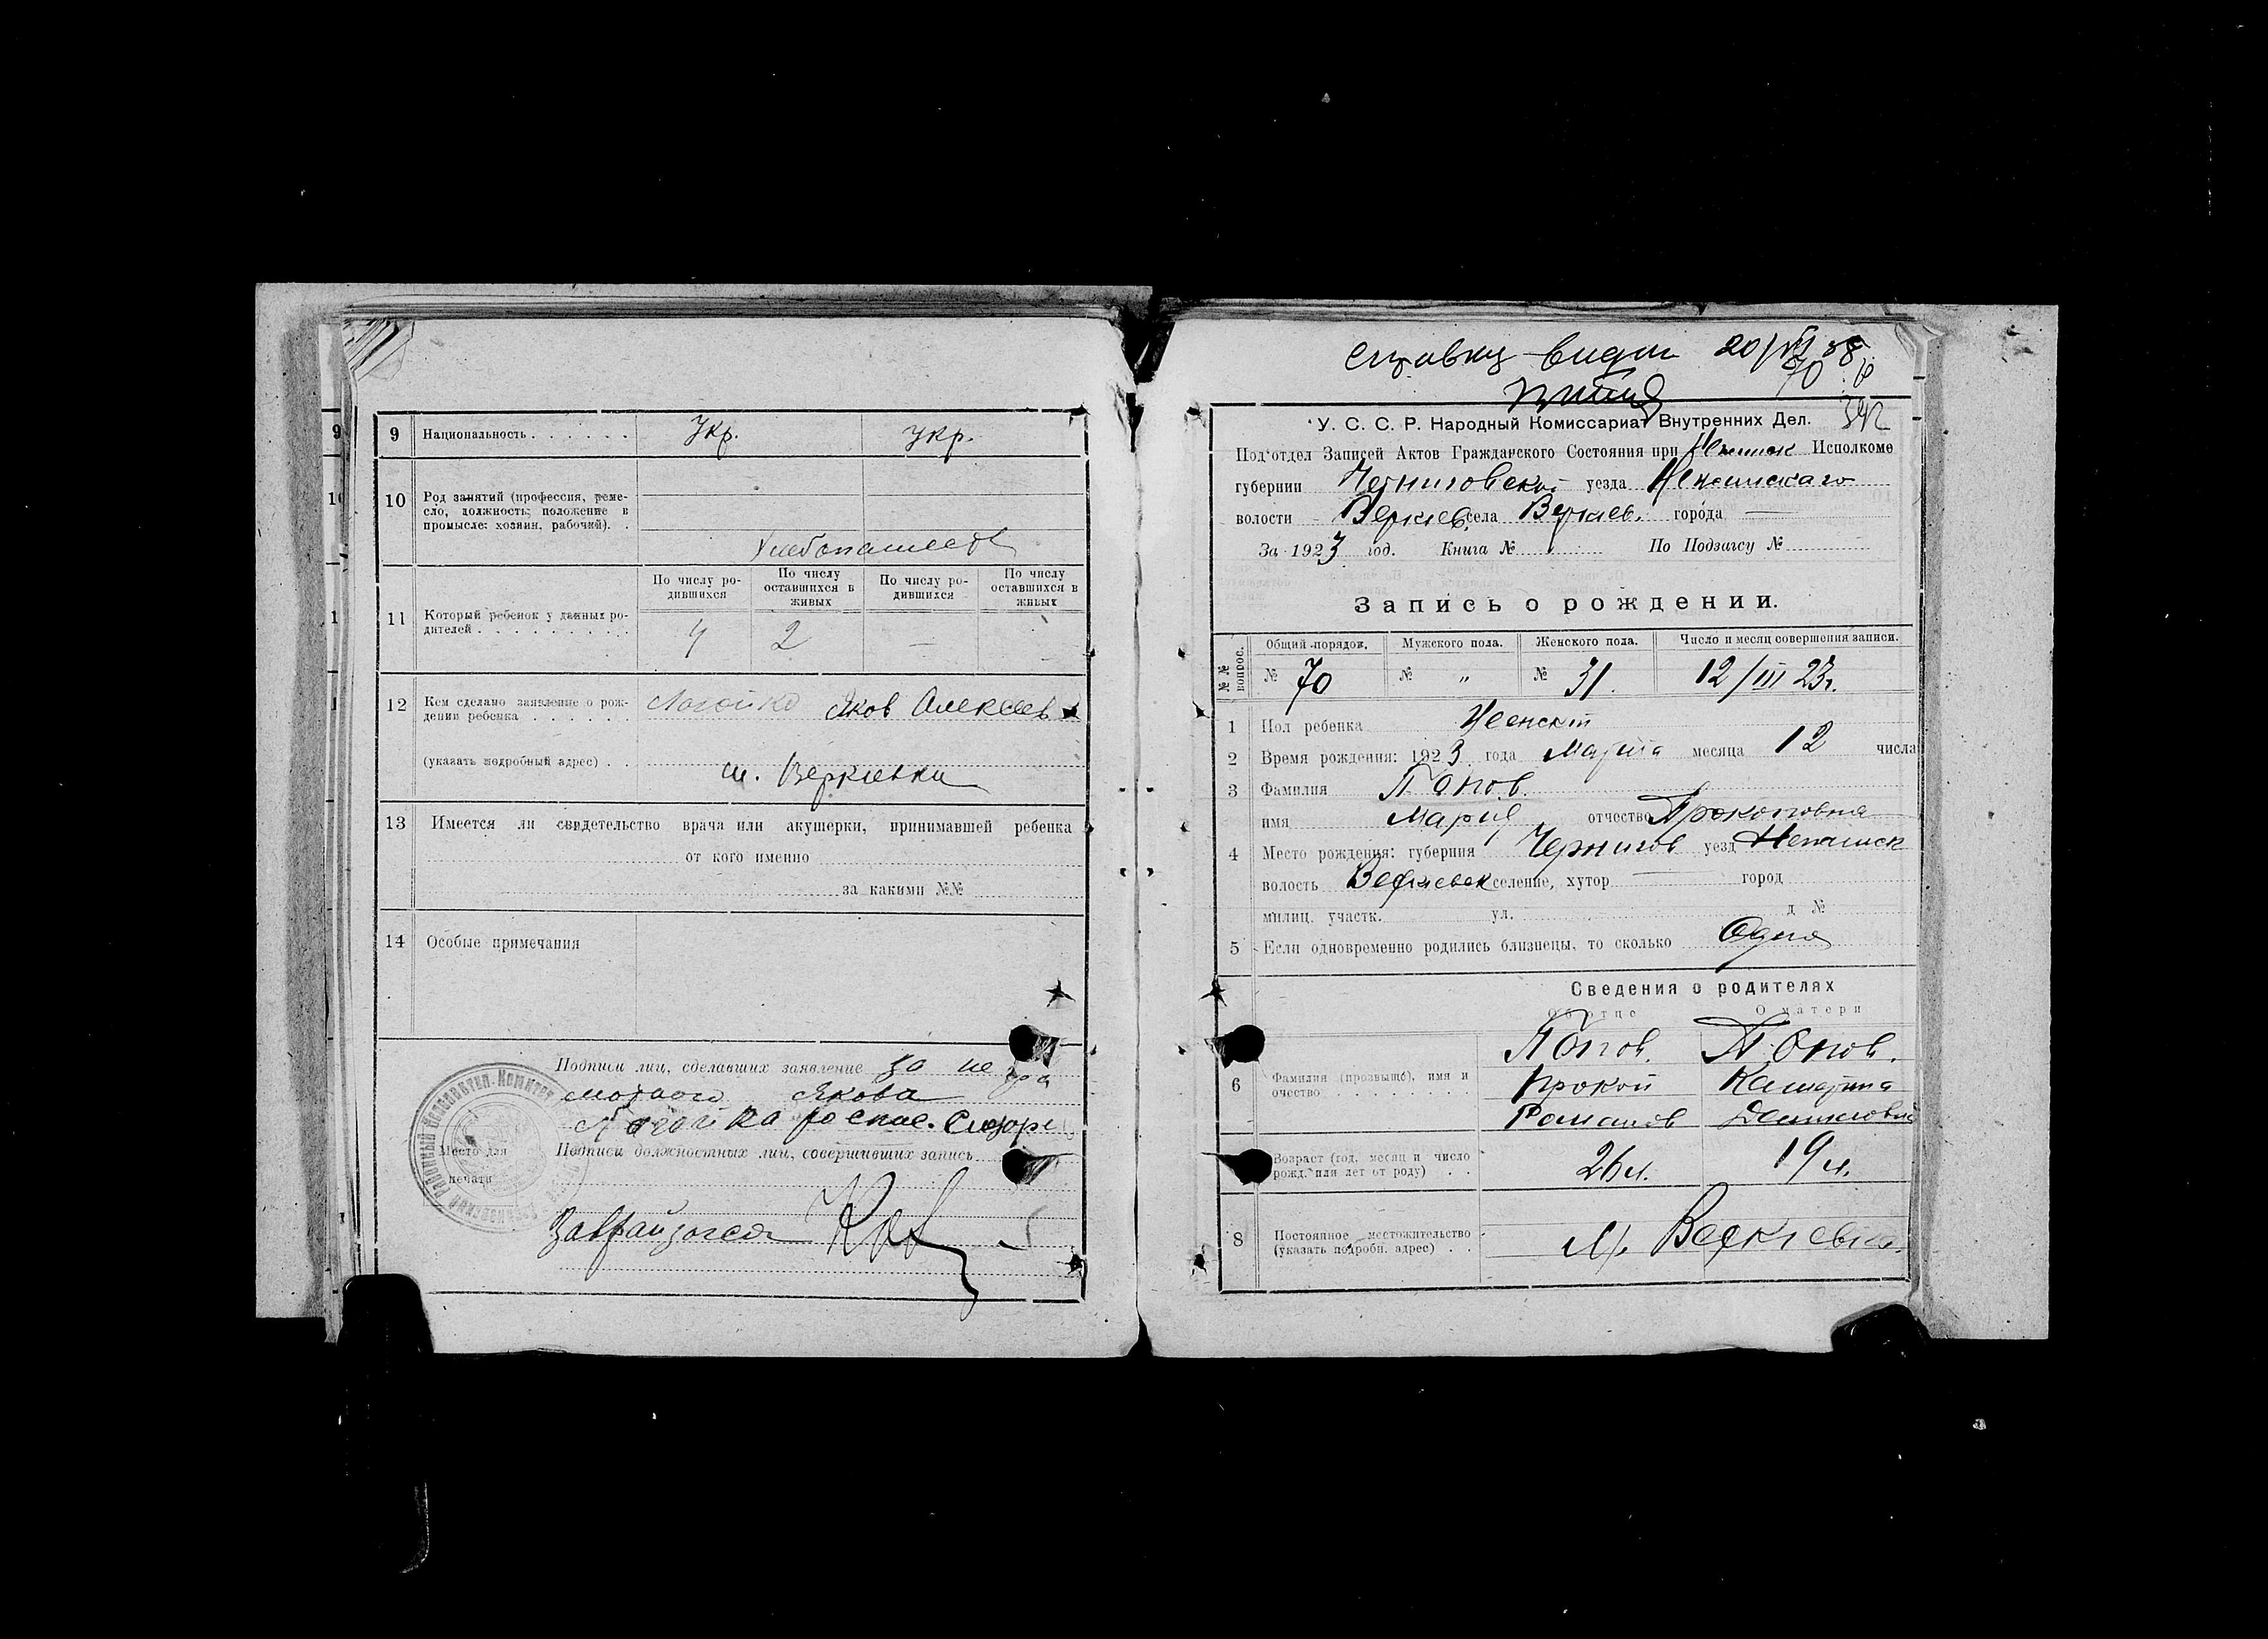 9 Национальность . . . . . . Укр. укр.
10 Род занятий (профессия, реме-
сло, должность; положение в
промысле: хозяин, рабочий). .
Хлебопашество
11 Который ребенок у данных ро-
дителей . . . . . . . . . .
По числу ро-
дившихся
По числу
оставшихся в
живых
По числу ро-
дившихся
По числу
оставшихся в
живых
2 —
12 Кем сделано заявление о рож-
дении ребенка . . . . . . Логойко Яков Алексеев
(указать подробный адрес) . . м. Веркиевки
13 Имеется ли свидетельство врача или акушерки, принимавшей ребенка
от кого именно
за какими №№
14 Особые примечания
Подписи лиц, сделавших заявление за негра
мотного Якова
Логойка роспис.
Подписи должностных лиц, совершивших запись
Место для
печати
Заврайзагсом
Справку видал 20/VII 38
70
342
У. С. С. Р. Народный Комиссариат Внутренних Дел.
Под'отдел Записей Актов Гражданского Состояния при Нежинск Исполкоме
губернии Черниговской уезда Нежинскаго
волости Веркиев. села Веркиев. города —
За 1923 год. Книга № По Подзагсу №
Запись о рождении.
№ № вопрос.
Общий порядок. Мужского пола. Женского пола. Число и месяц совершения записи.
№ 70 № „ № 31. 12/III 23г.
1 Пол ребенка Женский
2 Время рождения: 1923 года Марта месяца 12 числа
3 Фамилия Попов.
имя Мария отчество Прокоповна
4 Место рождения: губерния Чернигов уезд Нежинск
волость Веркиевск селение, хутор — город
милиц. участк. ул. д №
5 Если одновременно родились близнецы, то сколько Одна
Сведения о родителях
Об отце О матери
Попов. Попов.
6 Фамилия (прозвище), имя и
очество . . . . . . . . Прокоп Катерина
Романов Демидовна
Возраст (год, месяц и число
рожд. или лет от роду) . . 26 л. 19 л.
8 Постоянное местожительство
(указать подробн. адрес) . . М. Веркиевка.